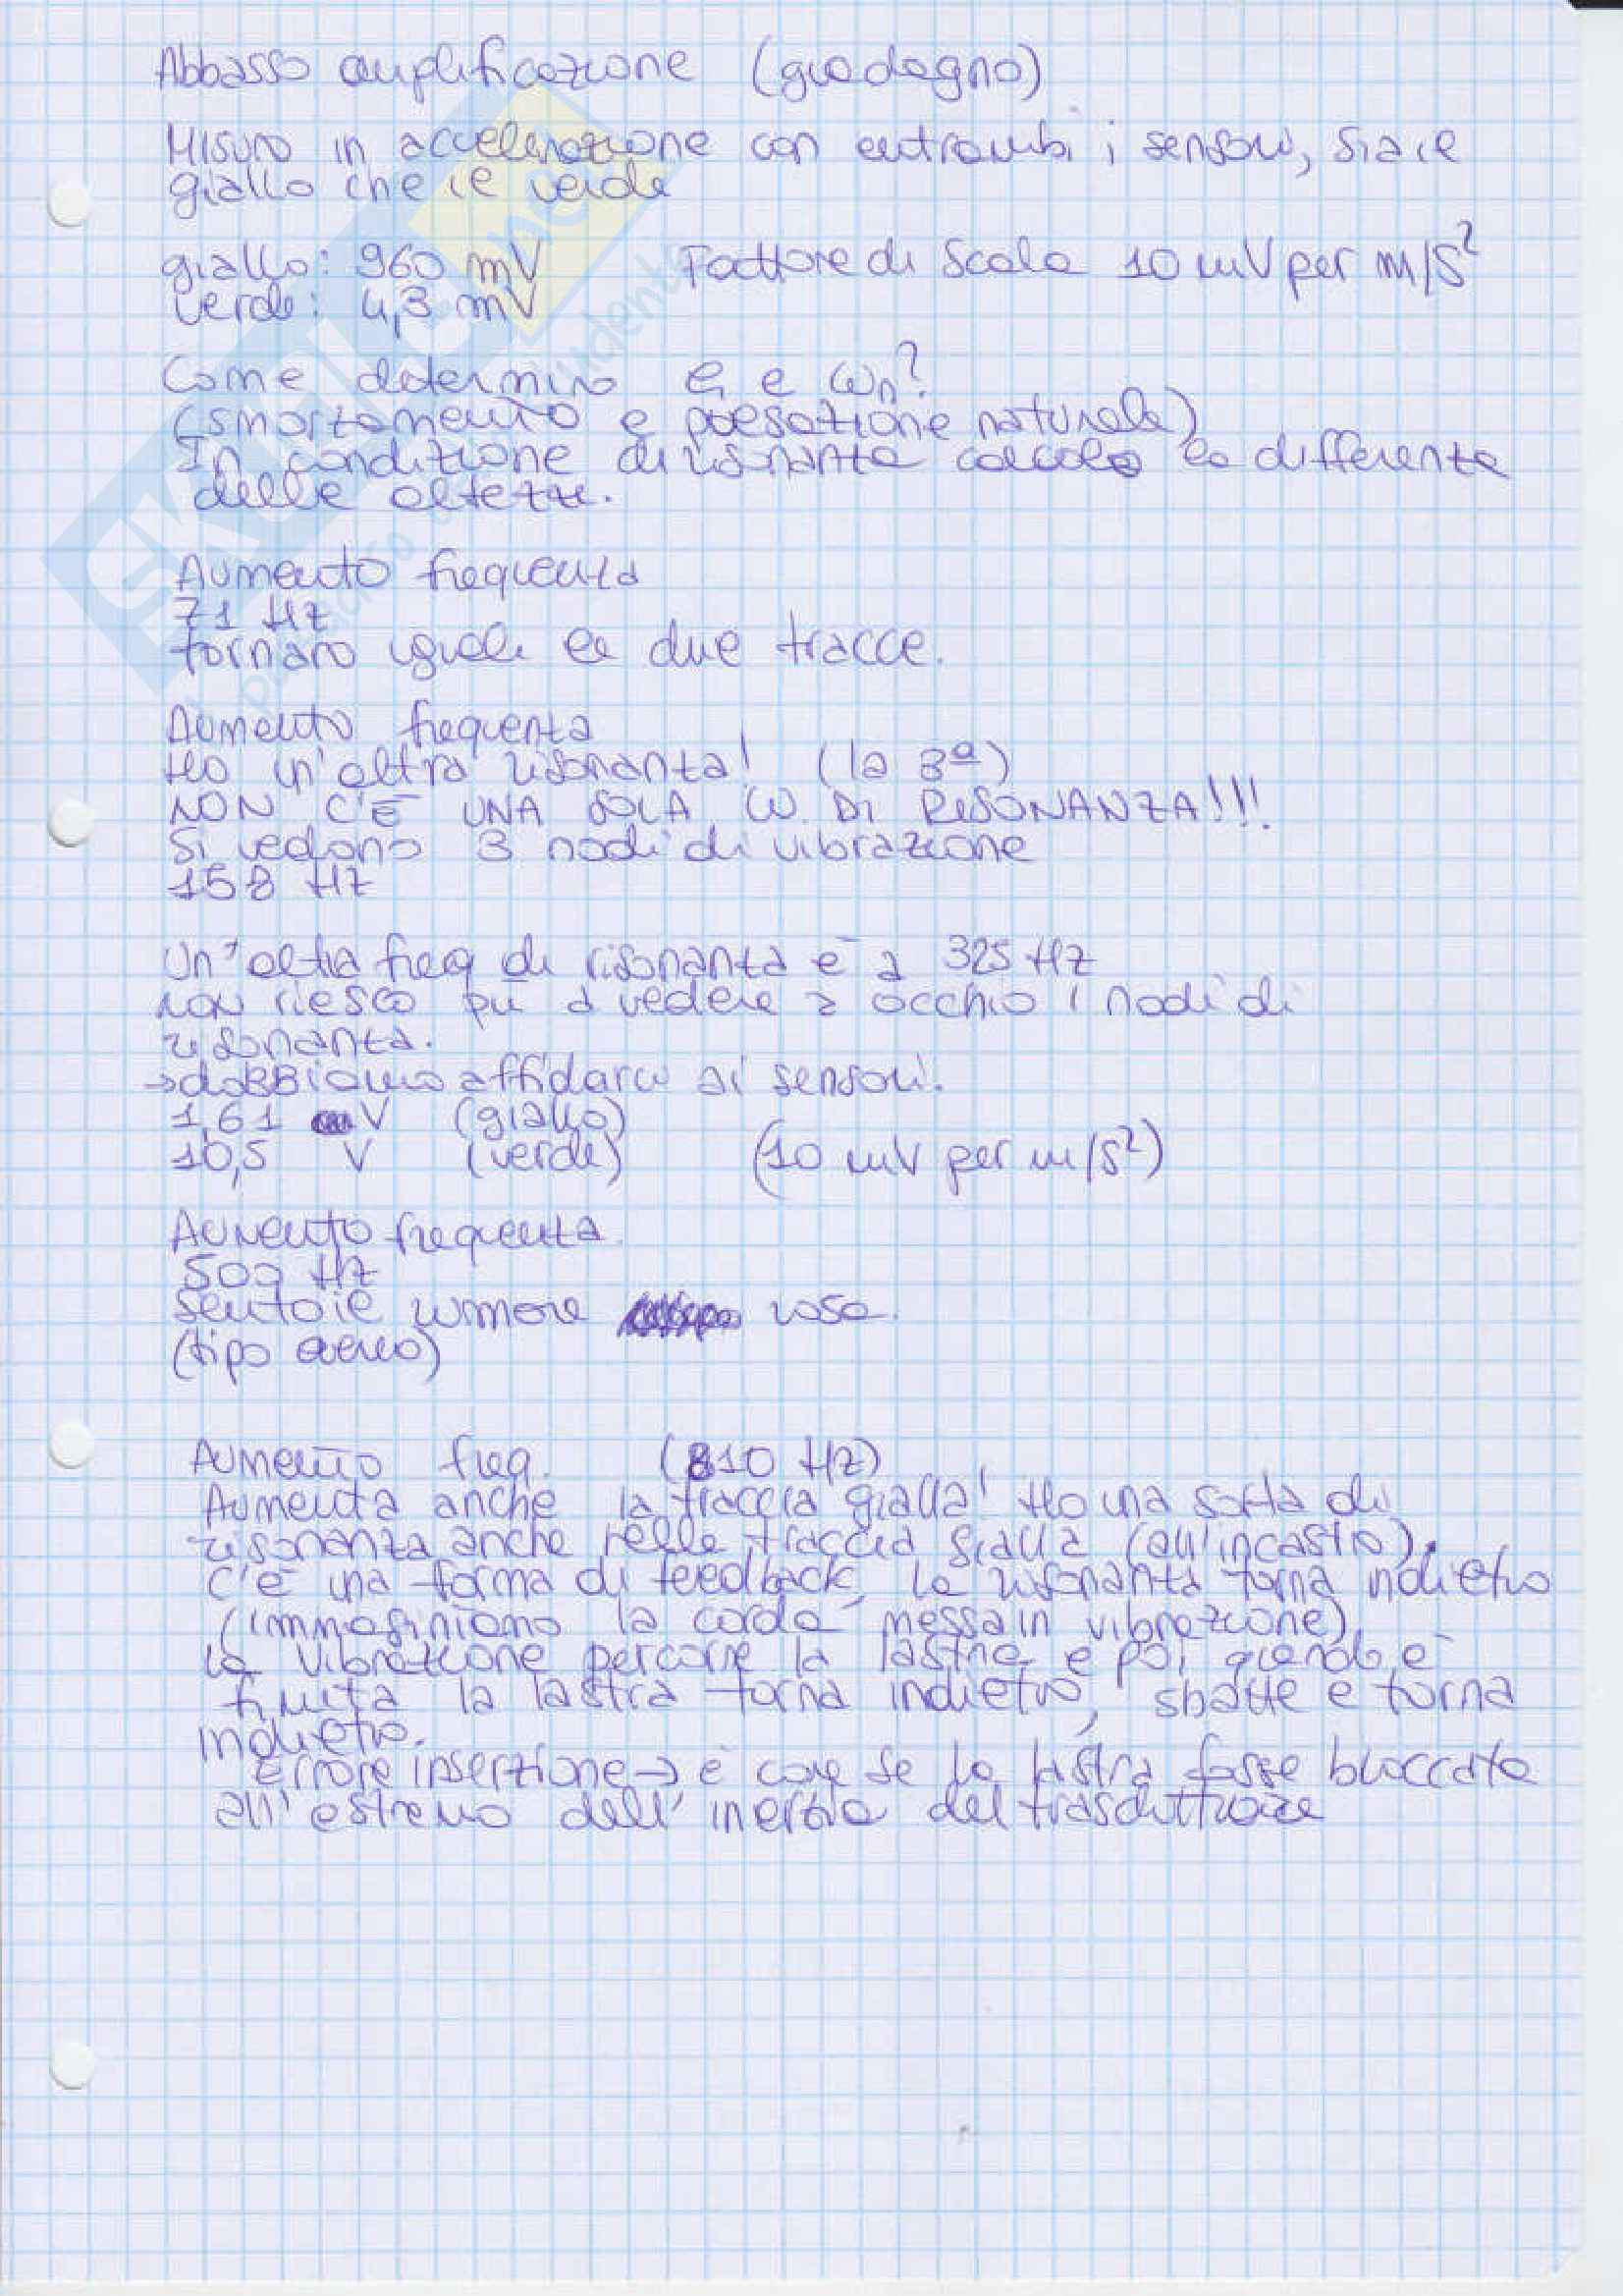 Abbasso amplificazione (guadagno)
Misuro in accelerazione con entrambi i sensori, sia il
giallo che il verde
giallo: 960 mV Fattore di Scala 10 mV per m/s²
verde: 4,3 mV
Come determino e ωn?
(smorzamento e pulsazione naturale)
In condizione di risonanza calcolo la differenza
delle altezze.
Aumento frequenza
71 Hz
tornano uguali le due tracce.
Aumento frequenza
Ho un'altra risonanza! (la 3ª)
NON C'È UNA SOLA ω DI RISONANZA!!!
Si vedono 3 nodi di vibrazione
158 Hz
Un'altra freq di risonanza è a 325 Hz
non riesco più a vedere a occhio i nodi di
risonanza.
→dobbiamo affidarci ai sensori.
1,61 V (giallo)
10,5 V (verde) (10 mV per m/s²)
Aumento frequenza
509 Hz
sento il rumore rosa.
(tipo aereo)
Aumento freq. (810 Hz)
Aumenta anche la traccia gialla! Ho una sorta di
risonanza anche nella traccia gialla (all'incastro).
C'è una forma di feedback, la risonanza torna indietro
(immaginiamo la corda messa in vibrazione)
la vibrazione percorre la lastra e poi, quando è
finita la lastra torna indietro, sbatte e torna
indietro.
Errore inserzione → è come se la lastra fosse bloccata
all'estremo dall'inerzia del trasduttore
SKUOLA.net